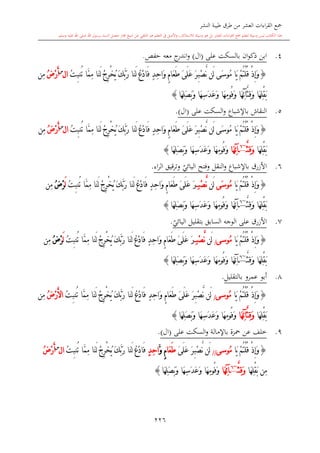 جمع القراءات العشر من طرق طيبة النشر
٤. ابن ذكوان بالسكت على (ال) واندرج معه حفص.
﴿ وَإِذْ قُلْتُمْ يَا مُوسَى لَن نَّصْبِرَ عَلَى طَعَامٍ وَاحِدٍ فَادْعُ لَنَا رَبَّكَ يُخْرِجْ لَنَا مِمَّا تُنبِتُ الْأَرْضُ مِن
بَقْلِهَا وَقِثَّائِهَا وَفُومِهَا وَعَدَسِهَا وَبَصَلِهَا ﴾
٥. النقاش بالإشباع والسكت على (ال).
﴿ وَإِذْ قُلْتُمْ يَا مُوسَى لَن نَّصْبِرَ عَلَى طَعَامٍ وَاحِدٍ فَادْعُ لَنَا رَبَّكَ يُخْرِجْ لَنَا مِمَّا تُنبِتُ الْأَرْضُ مِن
بَقْلِهَا وَقِثَّائِهَا وَفُومِهَا وَعَدَسِهَا وَبَصَلِهَا ﴾
٦. الأزرق بالإشباع والنقل وفتح اليائيّ وترقيق الراء.
﴿ وَإِذْ قُلْتُمْ يَا مُوسَى لَن نَّصْبِرَ عَلَى طَعَامٍ وَاحِدٍ فَادْعُ لَنَا رَبَّكَ يُخْرِجْ لَنَا مِمَّا تُنبِتُ لَرْضُ مِن
بَقْلِهَا وَقِثَّائِهَا وَفُومِهَا وَعَدَسِهَا وَبَصَلِهَا ﴾
٧. الأزرق على الوجه السابق بتقليل اليائيّ.
﴿ وَإِذْ قُلْتُمْ يَا مُوسَى لَن نَّصْبِرَ عَلَى طَعَامٍ وَاحِدٍ فَادْعُ لَنَا رَبَّكَ يُخْرِجْ لَنَا مِمَّا تُنبِتُ لَرْضُ مِن
بَقْلِهَا وَقِثَّائِهَا وَفُومِهَا وَعَدَسِهَا وَبَصَلِهَا ﴾
٨. أبو عمرو بالتقليل.
﴿ وَإِذْ قُلْتُمْ يَا مُوسَى لَن نَّصْبِرَ عَلَى طَعَامٍ وَاحِدٍ فَادْعُ لَنَا رَبَّكَ يُخْرِجْ لَنَا مِمَّا تُنبِتُ الْأَرْضُ مِن
بَقْلِهَا وَقِثَّائِهَا وَفُومِهَا وَعَدَسِهَا وَبَصَلِهَا ﴾
٩. خلف عن حمزة بالإمالة والسكت على (ال).
﴿ وَإِذْ قُلْتُمْ يَا مُوسَى لَن نَّصْبِرَ عَلَى طَعَامٍ وَاحِدٍ فَادْعُ لَنَا رَبَّكَ يُخْرِجْ لَنَا مِمَّا تُنبِتُ الْأَرْضُ
مِن بَقْلِهَا وَقِثَّائِهَا وَفُومِهَا وَعَدَسِهَا وَبَصَلِهَا ﴾
٢٢٦